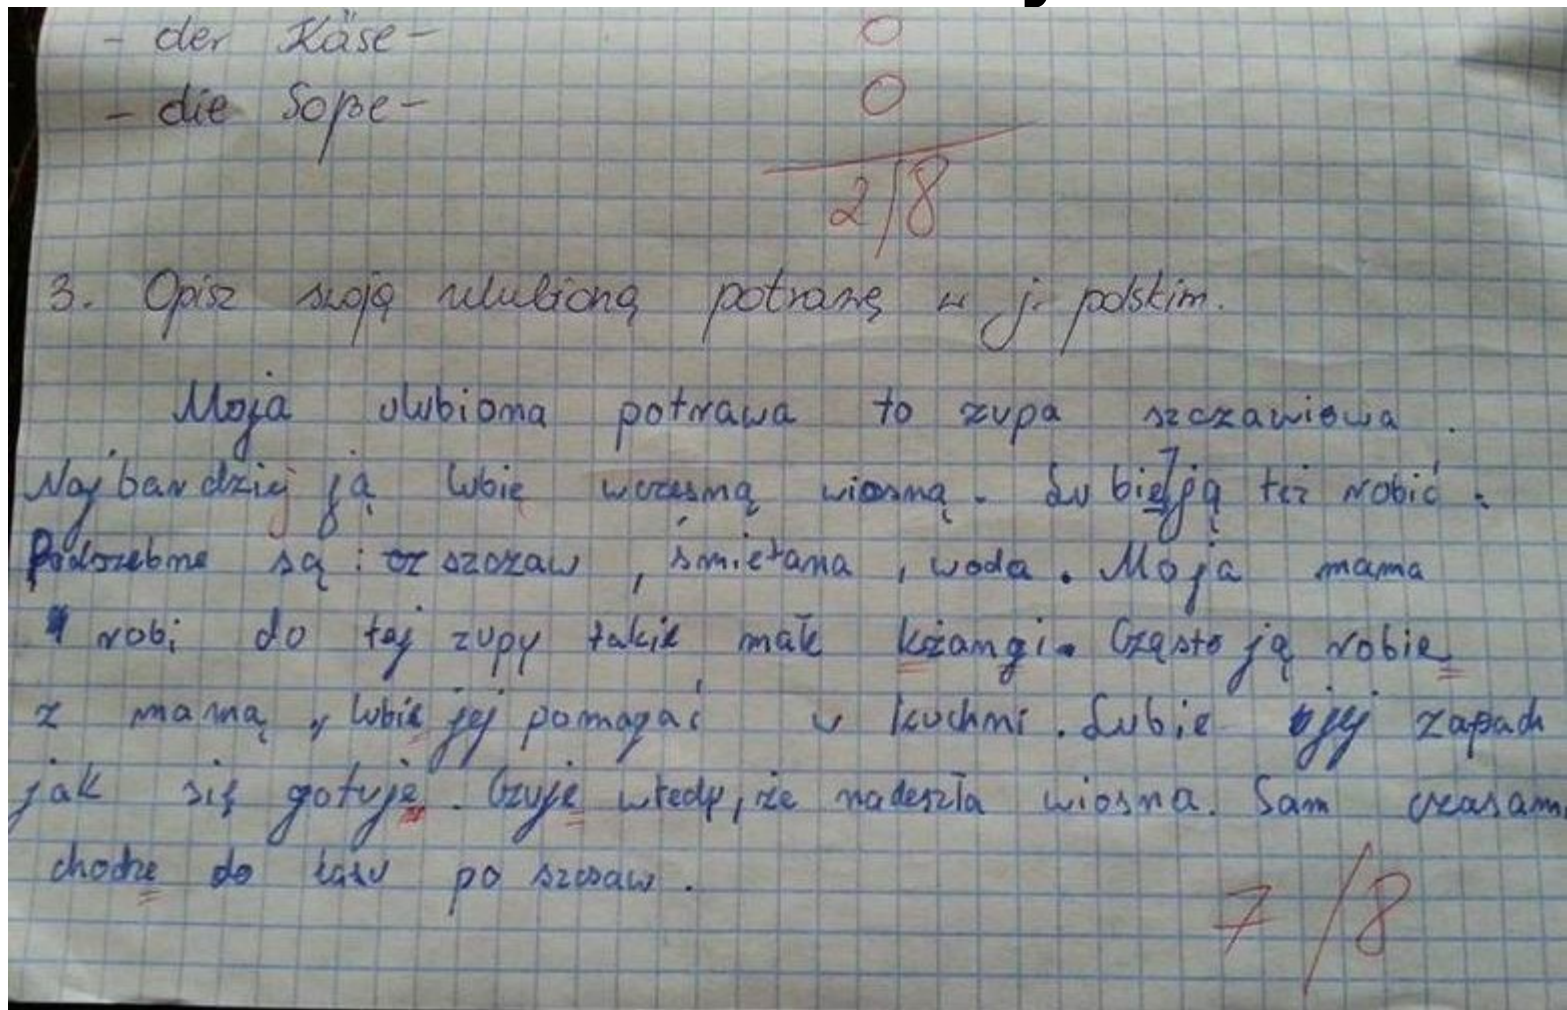 - der Käse - 0
- die Soβe - 0
2/8
3. Opisz swoją ulubioną potrawę w j. polskim.
Moja ulubiona potrawa to zupa szczawiowa.
Najbardziej ją lubię wczesną wiosną. Lubie ją też robić.
Podrzebne są: szczaw, śmietana, woda. Moja mama
robi do tej zupy takie małe kżangi. Cząsto ją robie
z mamą, lubie jej pomagać w kuchni. Lubie jej zapach
jak się gotuję. Czuje wtedy, że nadeszła wiosna. Sam czasami
chodze do lasu po szczaw.
7/8